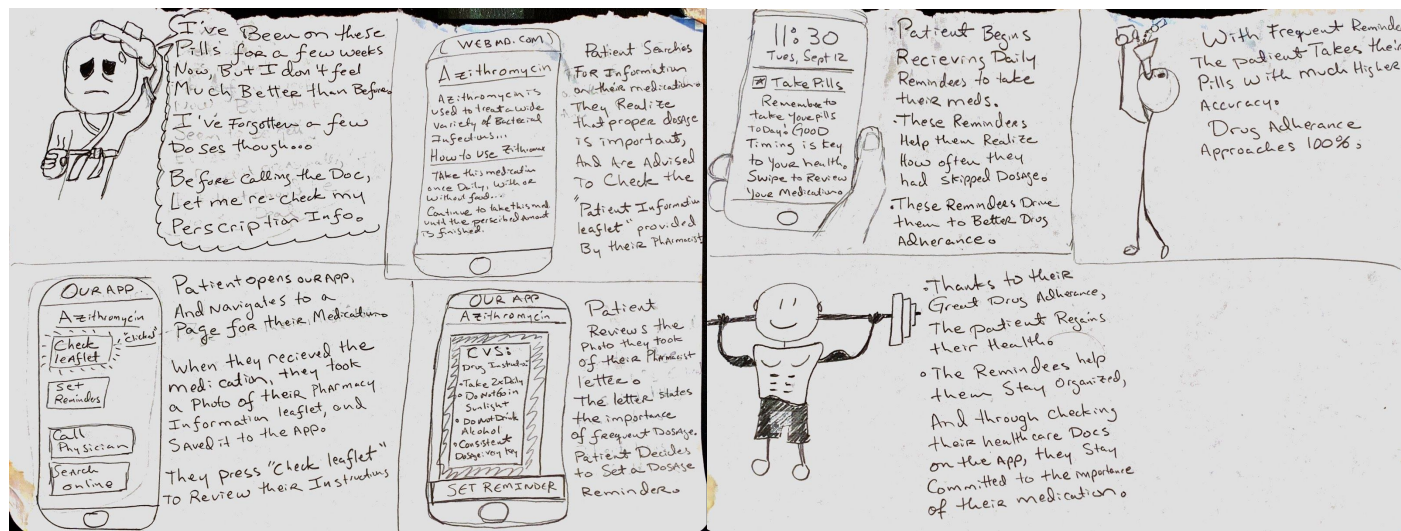 I've Been on these
Pills for a few weeks
Now, But I don't feel
Much Better than Before.
I've Forgotten a few
Doses though...
Before calling the Doc,
Let me re-check my
Perscription Info.
WEBMD.COM
Azithromycin
Azithromycin is
used to treat a wide
variety of Bacterial
Infections...
How to use Zithromax
Take this medication
once Daily, with or
without food...
Continue to take this med
until the perscribed amount
is finished.
Patient Searches
For Information
on their medication.
They Realize
that proper dosage
is important,
And Are Advised
To Check the
"Patient Information
leaflet" provided
By their Pharmacist
OUR APP
Azithromycin
Check
leaflet
"clicked"
Set
Reminder
Call
Physician
Search
online
Patient opens our App,
And Navigates to a
Page for their Medication.
When they recieved the
medication, they took
a Photo of their Pharmacy
Information leaflet, and
Saved it to the App.
They press "Check leaflet"
To Review their Instructions
OUR APP
Azithromycin
CVS:
Drug Instructo:
• Take 2x Daily
• Do Not Go in
Sunlight
• Do Not Drink
Alcohol
• Consistent
Dosage: very key
SET REMINDER
Patient
Reviews the
Photo they took
of their Pharmacist
letter.
The letter states
the importance
of frequent Dosage.
Patient Decides
to Set a Dosage
Reminder.
11:30
Tues, Sept 12
Take Pills
Remember to
take your pills
Today! Good
Timing is key
to your health.
Swipe to Review
Your Medication.
• Patient Begins
Recieving Daily
Reminders to take
their meds.
• These Reminders
Help them Realize
How often they
had skipped Dosage.
• These Reminders Drive
them to Better Drug
Adherance.
With Frequent Reminde
The patient Takes their
Pills With much Higher
Accuracy.
Drug Adherance
Approaches 100%.
• Thanks to their
Great Drug Adherance,
The patient Regains
their Health.
• The Reminders help
them Stay Organized,
And through checking
their healthcare Docs
on the App, they Stay
Committed to the importance
of their medication.